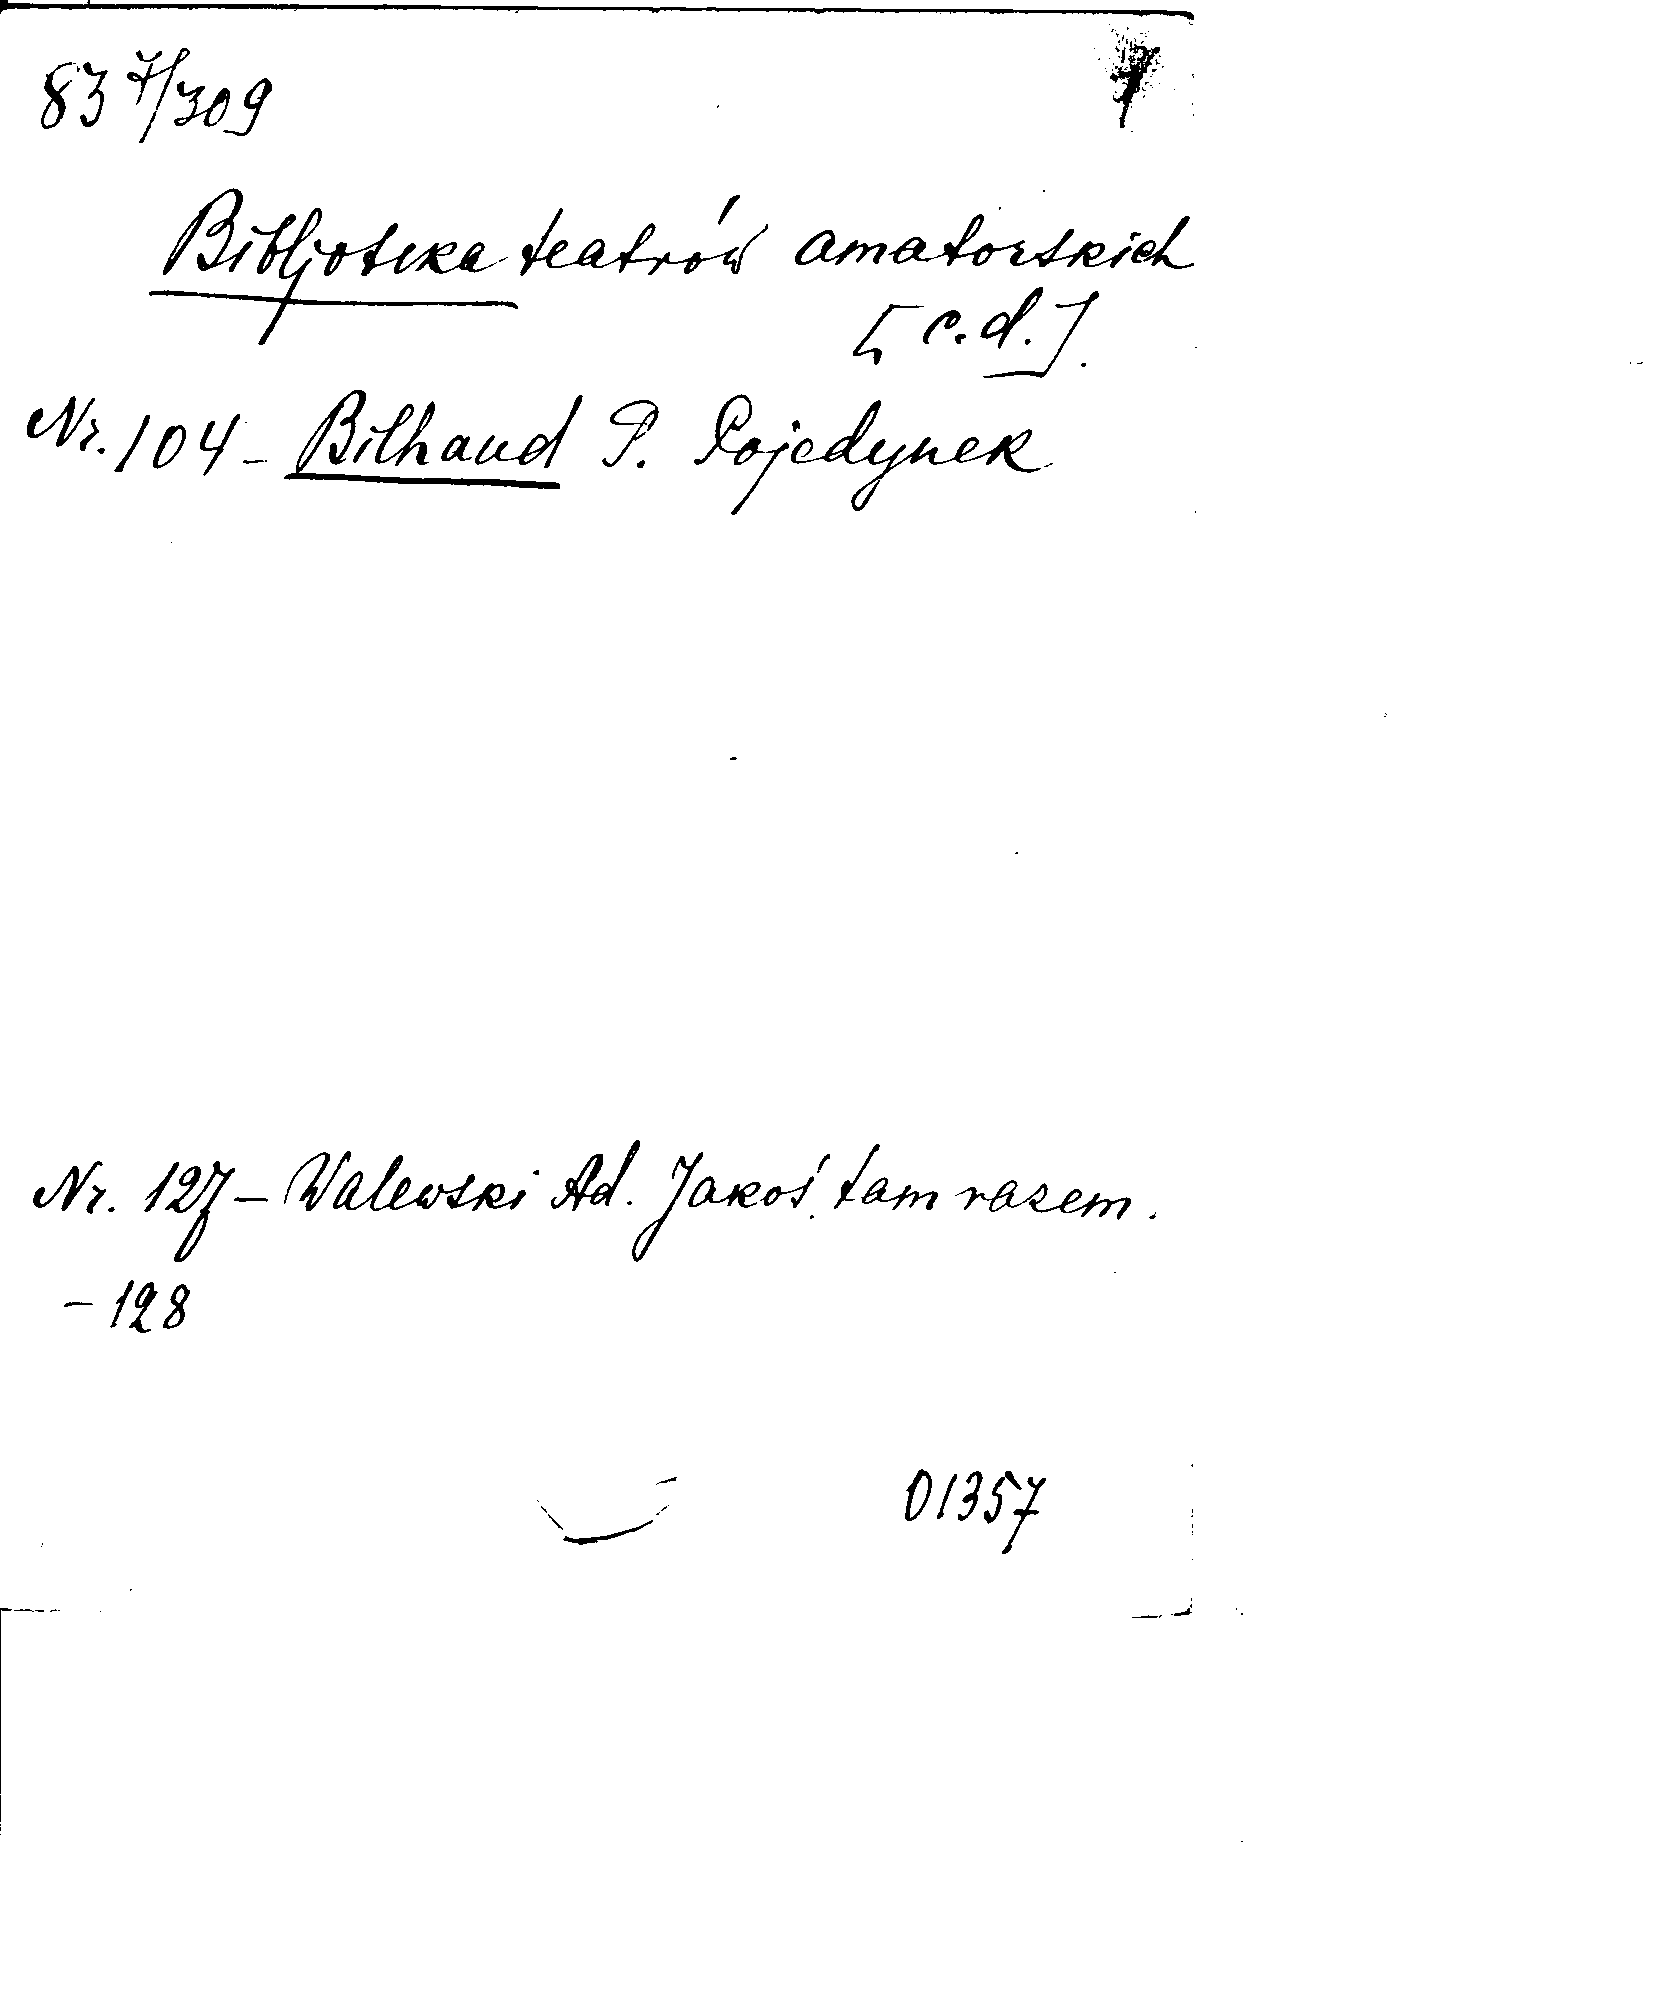 83 7/309
Bibljoteka teatrów amatorskich
[c.d.].
Nr. 104 - Bilhaud P. Pojedynek
Nr. 127 - Walewski Ad. Jakoś tam razem.
- 128
01357